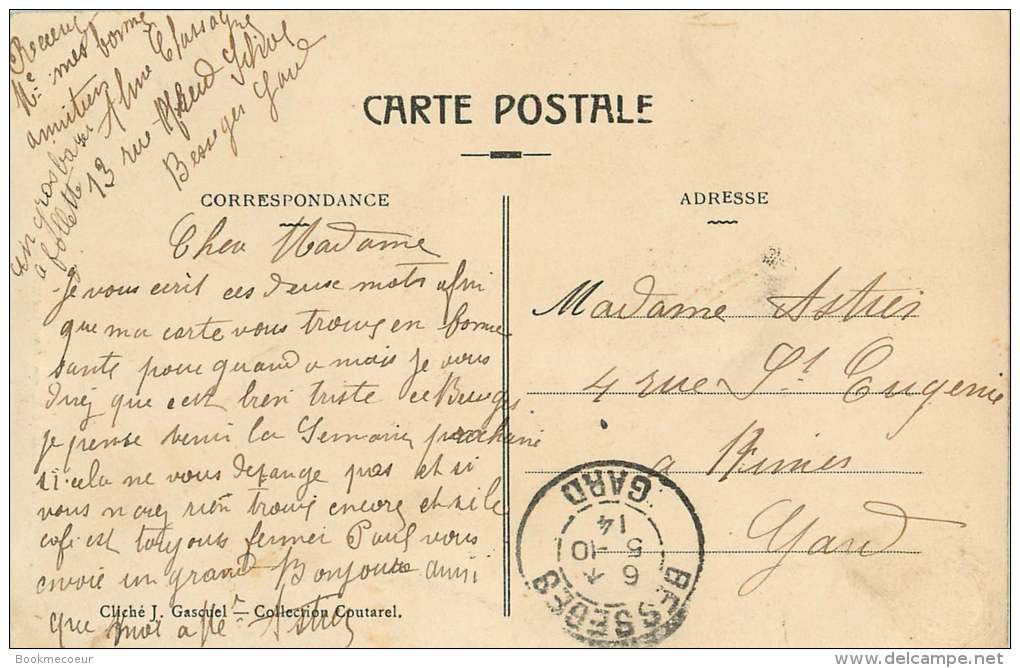 Recevez
Me mes bonne
amities
un gros baiser Mme Chassagne
a follette 13 rue
Besseges Gard
CARTE POSTALE
CORRESPONDANCE
Cher Madame
Je vous ecrit ces deuse mots afin
que ma carte vous trouve en bonne
sante pour quand a mais je vous
direz que c est bien triste
je pense venir la Semaine prochaine
si cela ne vous derange pas et si
vous narez rien trouve encore et si le
cafe est toujours fermer Paul vous
envoie un grand Bonjour ainsi
que moi a Me Astier
Cliché J. Gascuel — Collection Coutarel.
ADRESSE
Madame Astier
4 rue St Eugenie
a Nimes
Gard
BESSEGES GARD
6 5 -10 14
Bookmecoeur
www.delcampe.net